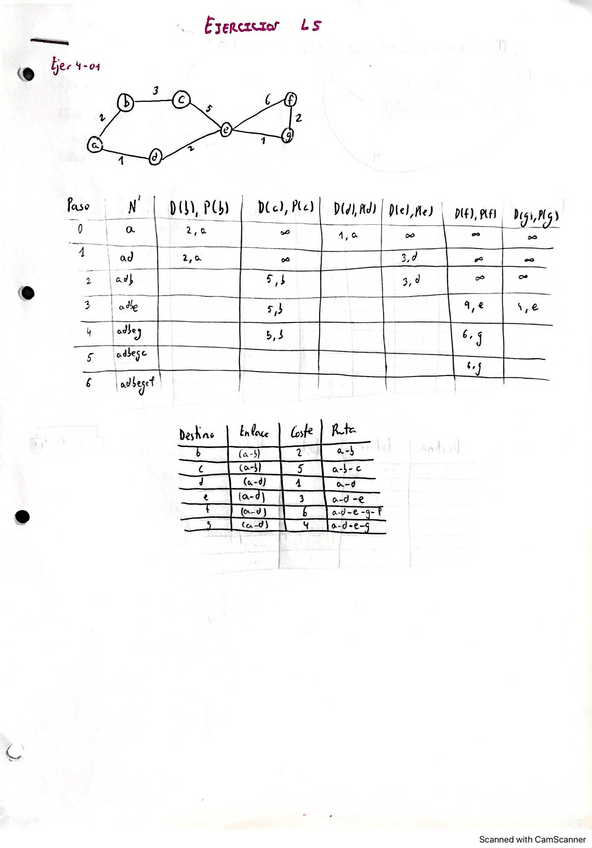 EJERCICIOS L5
Ejer 4-01
b 3 c 5 6 f
2 e 2
a 1 d 2 1 g
Paso N' D(b), P(b) D(c), P(c) D(d), P(d) D(e), P(e) D(f), P(f) D(g), P(g)
0 a 2, a ∞ 1, a ∞ ∞ ∞
1 ad 2, a ∞ 3, d ∞ ∞
2 adb 5, b 3, d ∞ ∞
3 adbe 5, b 9, e 4, e
4 adbeg 5, b 6, g
5 adbegc 6, g
6 adbegcf
Destino Enlace Coste Ruta
b (a-b) 2 a-b
c (a-b) 5 a-b-c
d (a-d) 1 a-d
e (a-d) 3 a-d-e
f (a-d) 6 a-d-e-g-f
g (a-d) 4 a-d-e-g
Scanned with CamScanner